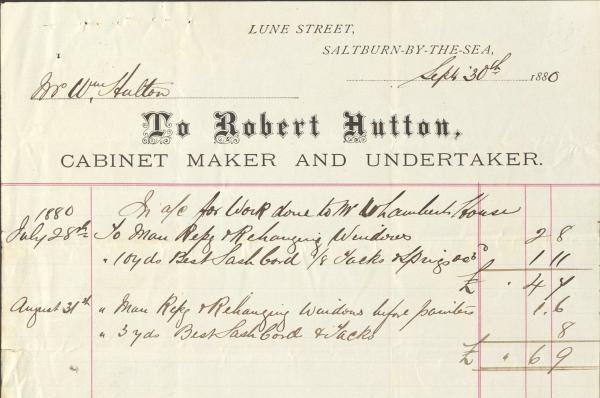 LUNE STREET,
SALTBURN-BY-THE-SEA,
Sept 30th 1880
Mr Wm Hutton
To Robert Hutton,
CABINET MAKER AND UNDERTAKER.
1880 In a/c for Work done to Mr Chamberts House
July 28th To Man Repg & Rehanging Windows 2 8
" 10 yds Best Sash Cord Tacks & Sprigs 1 11
£ " 4 7
August 31st " Man Repg & Rehanging Windows before painters 1. 6
" 3 yds Best Sash Cord & Tacks 8
£ " 6 9